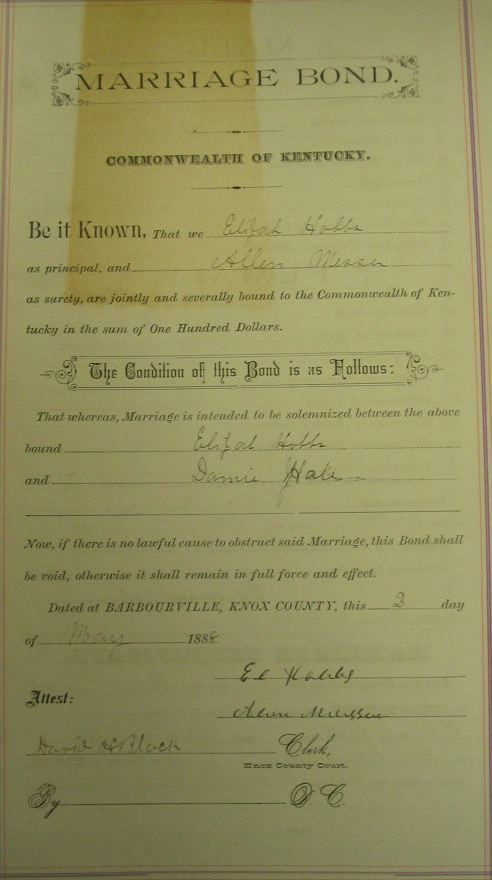 MARRIAGE BOND.
COMMONWEALTH OF KENTUCKY.
Be it Known, That we Elijah Hobbs
as principal, and Allen Messer
as surety, are jointly and severally bound to the Commonwealth of Ken-
tucky in the sum of One Hundred Dollars.
The Condition of this Bond is as Follows:
That whereas, Marriage is intended to be solemnized between the above
bound Elijah Hobbs
and Damie Hale
Now, if there is no lawful cause to obstruct said Marriage, this Bond shall
be void, otherwise it shall remain in full force and effect.
Dated at BARBOURVILLE, KNOX COUNTY, this 3 day
of May 1888
El Hobbs
Attest:
David H Black Clerk,
Knox County Court.
By D. C.